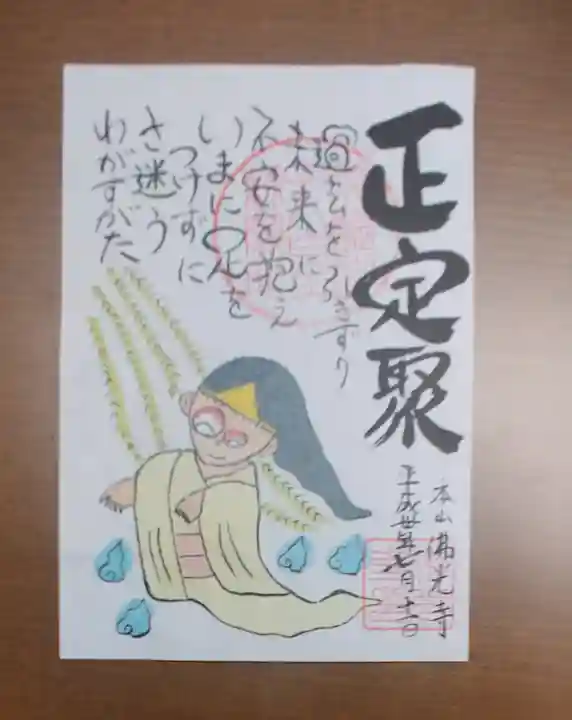 正定聚
過去を引きずり
未来に
不安を抱え
いまに足を
つけずに
さ迷う
わがすがた
本山佛光寺
平成卅年七月十一日